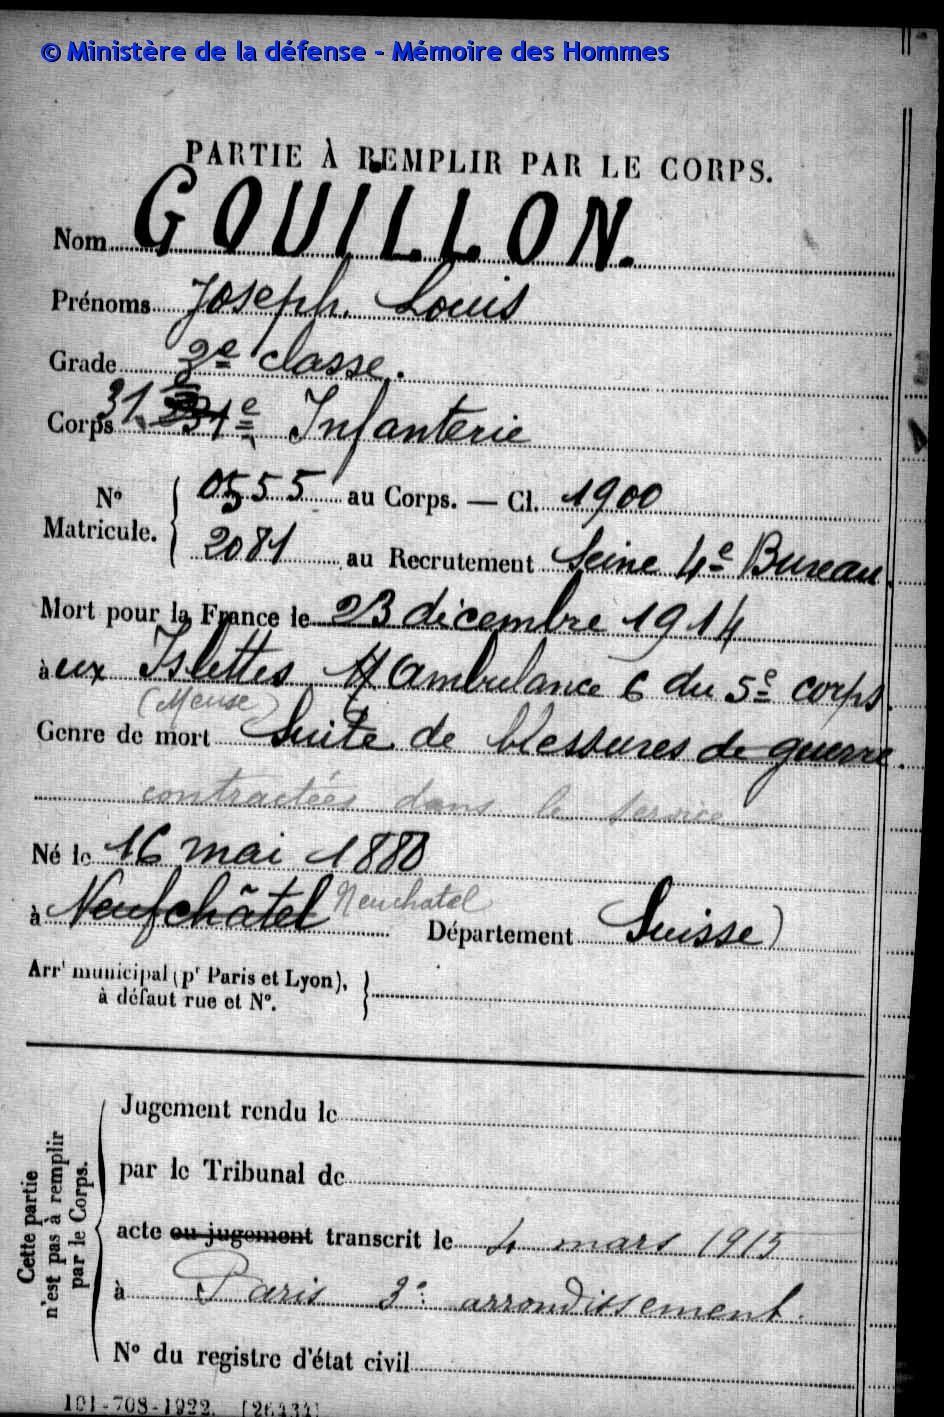 © Ministère de la défense - Mémoire des Hommes
PARTIE À REMPLIR PAR LE CORPS.
Nom GOUILLON.
Prénoms Joseph, Louis
Grade 2e classe.
Corps 31 331e Infanterie
No Matricule. { 0555 au Corps. — Cl. 1900
2081 au Recrutement Seine 4e Bureau
Mort pour la France le 23 décembre 1914
à ux Islettes Ambulance 6 du 5e corps.
(Meuse)
Genre de mort Suite de blessures de guerre.
contractées dans le service
Né le 16 mai 1880
à Neufchâtel Neuchatel Département Suisse)
Arrt municipal (pr Paris et Lyon), }
à défaut rue et No.
Cette partie n'est pas à remplir par le Corps.
Jugement rendu le
par le Tribunal de
acte ou jugement transcrit le 4 mars 1915
à Paris 3e arrondissement.
No du registre d'état civil
101-708-1922. [26434]